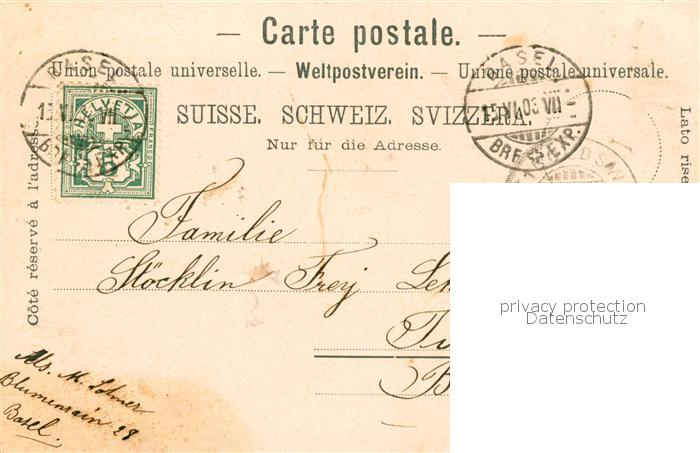 — Carte postale. —
Union postale universelle. — Weltpostverein. — Unione postale universale.
SUISSE. SCHWEIZ. SVIZZERA.
Nur für die Adresse.
Côté réservé à l'adresse.
Lato rise
HELVETIA
5
FRANCO
BASEL
BASEL
15.VI.03 VII
BRF. EXP.
Familie
Stöcklin Frey
B
Abs. M.
Blumenrain 28
Basel.
privacy protection
Datenschutz